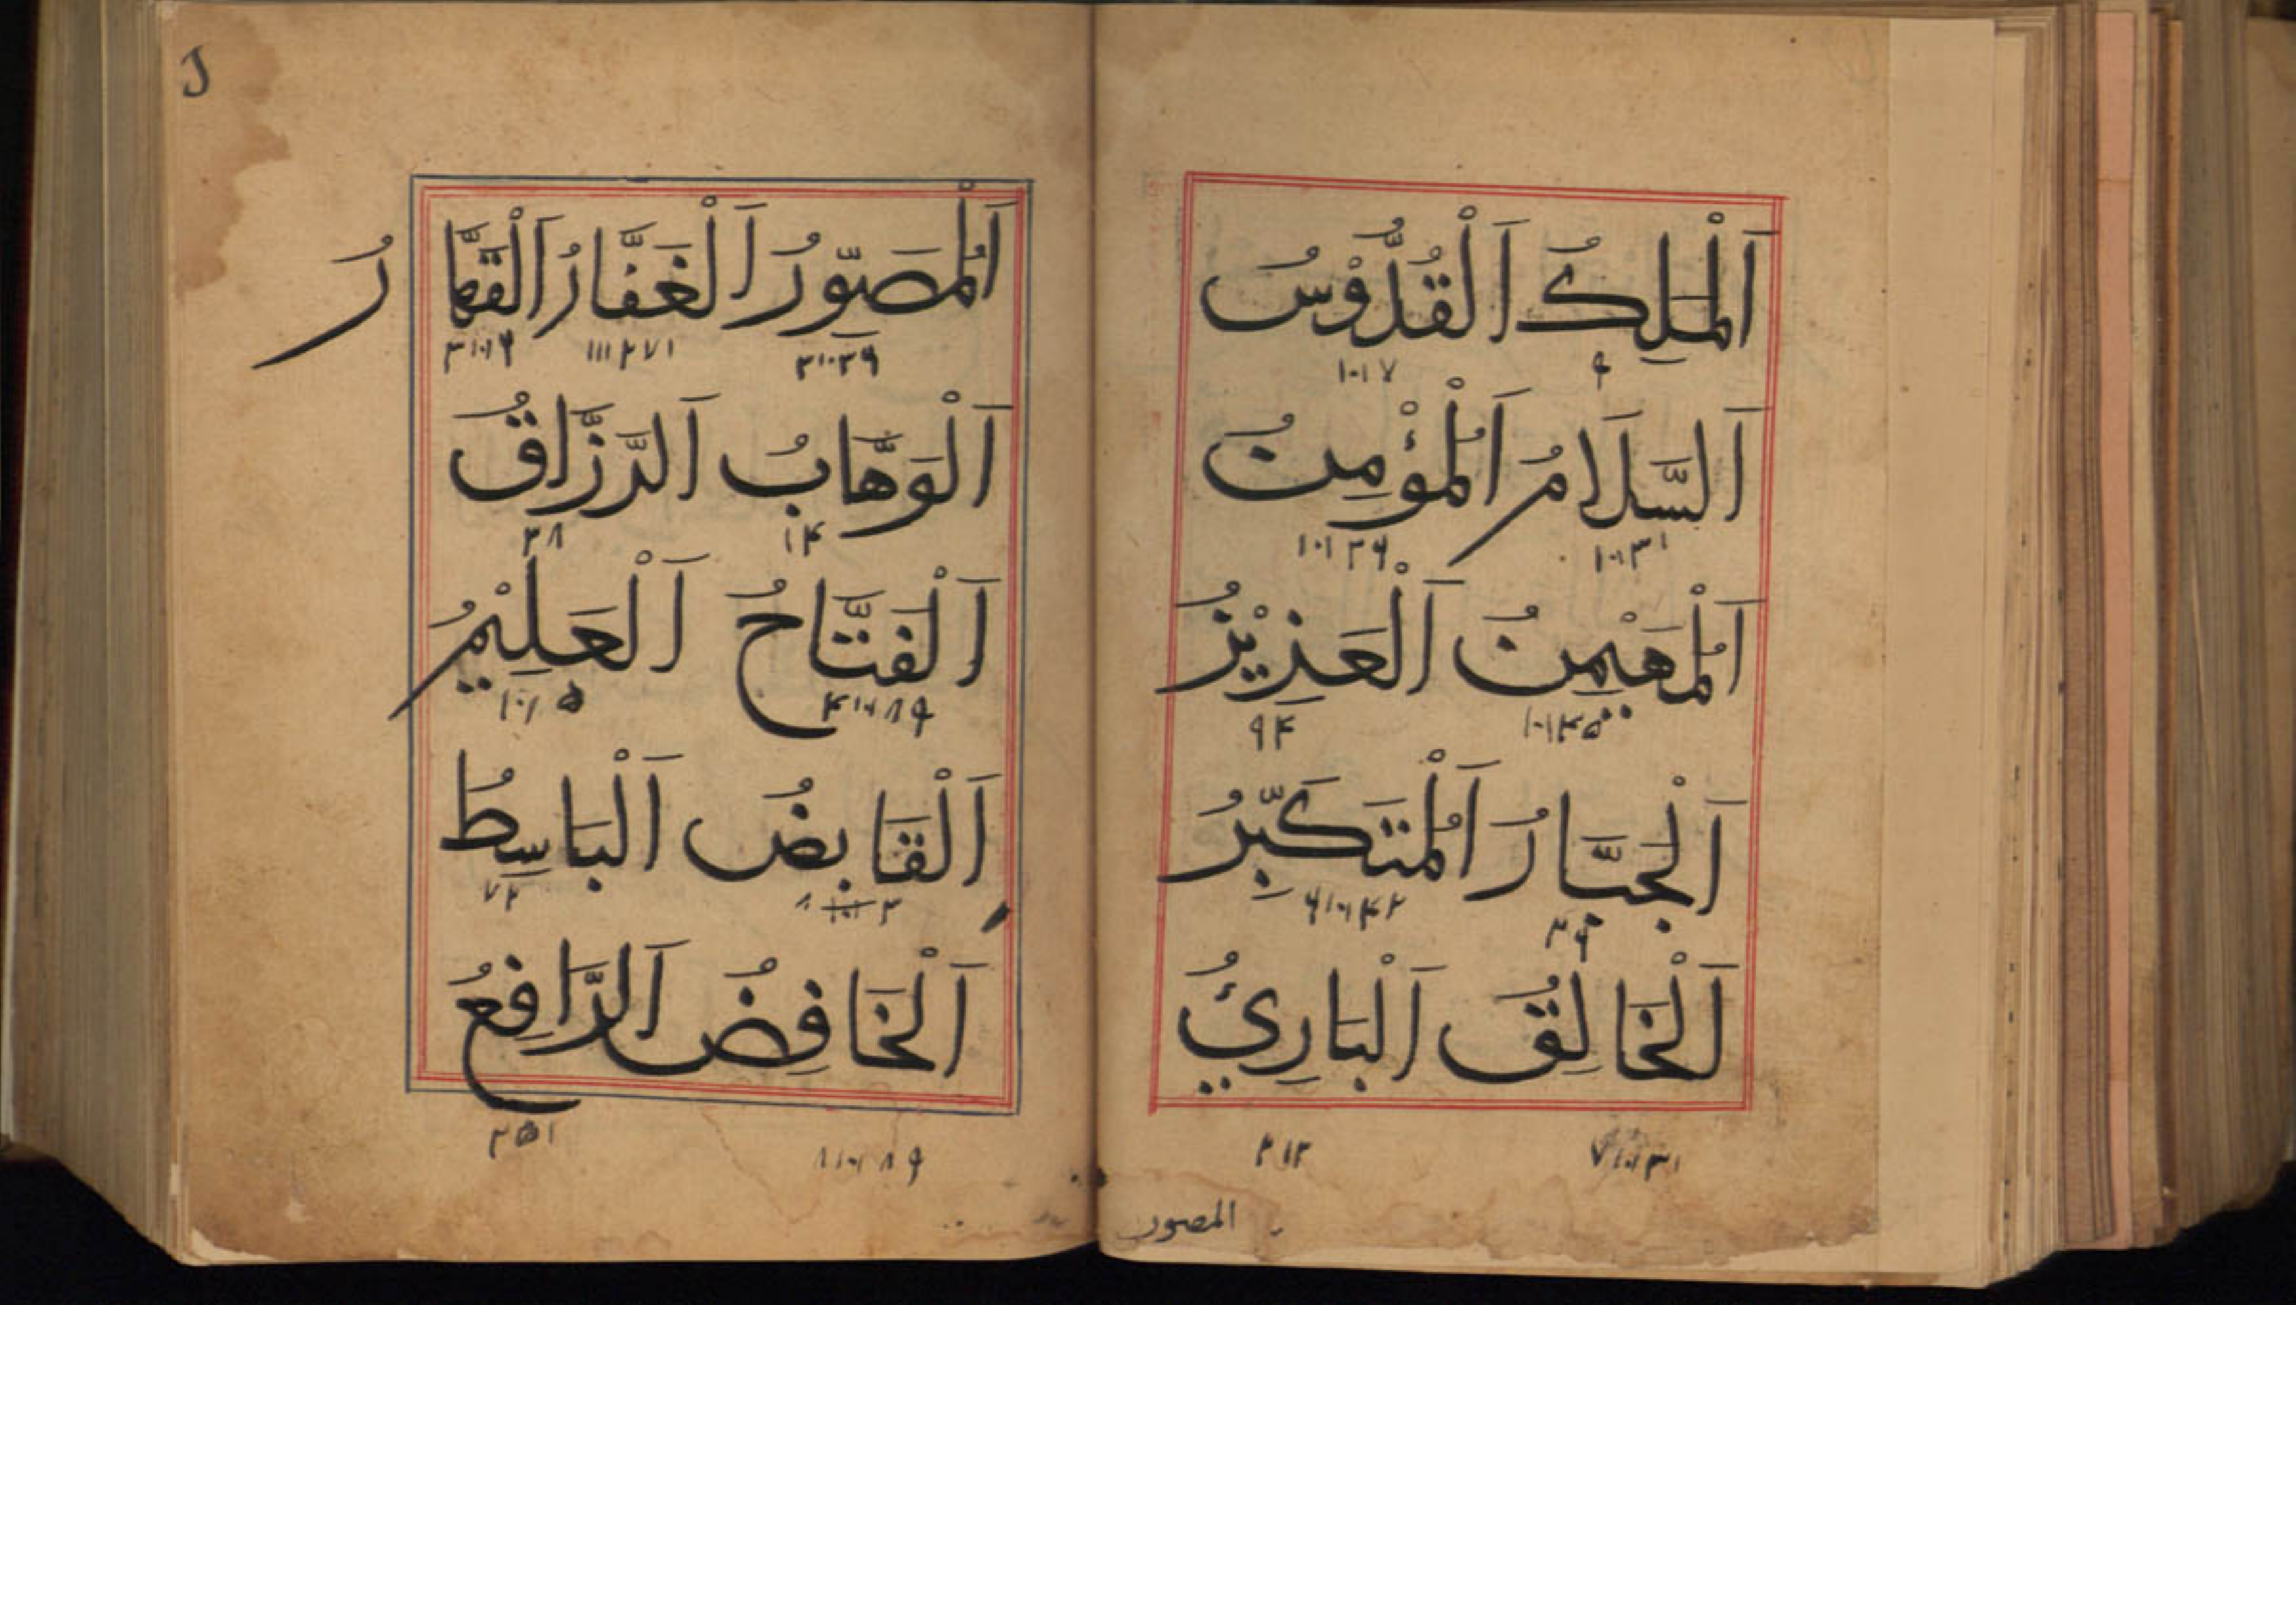 اَلْمَلِكُ اَلْقُدُّوْسُ
۱۰۱۷
اَلسَّلَامُ اَلْمُؤْمِنُ
اَلْمُهَيْمِنُ اَلْعَزِيْزُ
۹۴
اَلْجَبَّارُ اَلْمُتَكَبِّرُ
اَلْخَالِقُ اَلْبَارِئُ
۲۱۳
المصور
اَلْمُصَوِّرُ اَلْغَفَّارُ اَلْقَهَّارُ
اَلْوَهَّابُ اَلرَّزَّاقُ
۱۴ ۳۸
اَلْفَتَّاحُ اَلْعَلِيْمُ
اَلْقَابِضُ اَلْبَاسِطُ
۷۲
اَلْخَافِضُ اَلرَّافِعُ
۲۵۱